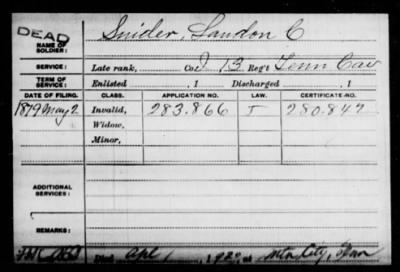 DEAD
NAME OF SOLDIER: Snider, Landon C
SERVICE: Late rank, Co. I 13 Reg't Tenn Cav
TERM OF SERVICE: Enlisted , 1 Discharged , 1
DATE OF FILING. CLASS. APPLICATION NO. LAW. CERTIFICATE NO.
1879 May 2 Invalid, 283.866 I 280.842
Widow,
Minor,
ADDITIONAL SERVICES:
REMARKS:
Died Apl 1, 192 at Mtn City, Tenn